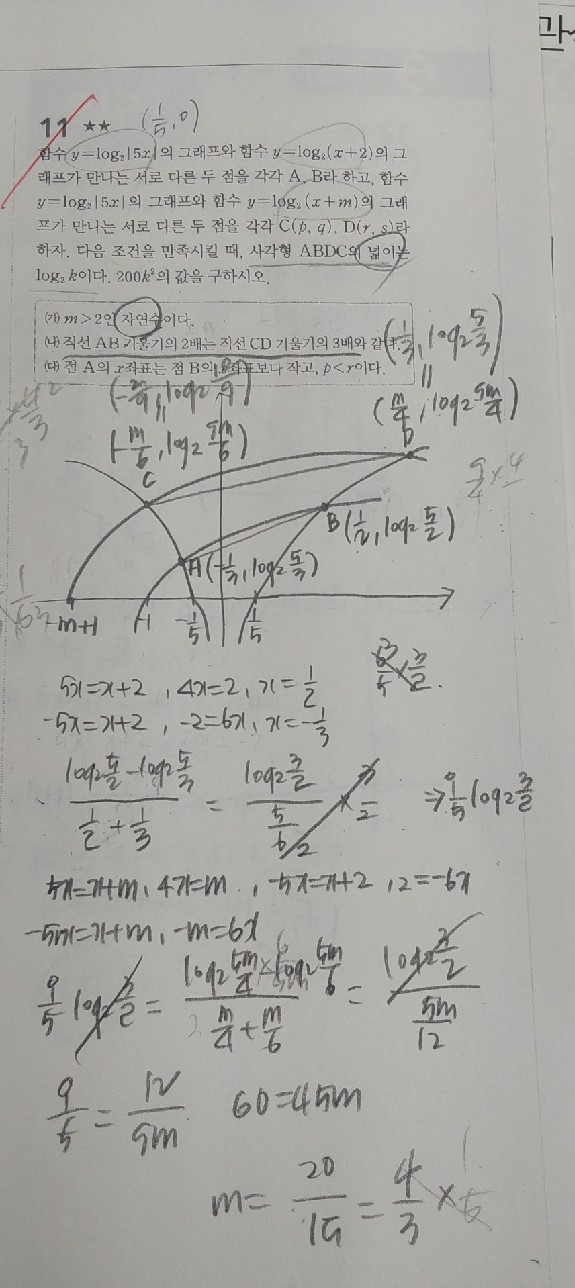 11 ★★ (1/5, 0)
함수 y=log₂|5x|의 그래프와 함수 y=log₂(x+2)의 그
래프가 만나는 서로 다른 두 점을 각각 A, B라 하고, 함수
y=log₂|5x|의 그래프와 함수 y=log₂(x+m)의 그래
프가 만나는 서로 다른 두 점을 각각 C(p, q), D(r, s)라
하자. 다음 조건을 만족시킬 때, 사각형 ABDC의 넓이는
log₂ k이다. 200k³의 값을 구하시오.
(가) m>2인 자연수이다.
(나) 직선 AB 기울기의 2배는 직선 CD 기울기의 3배와 같다.
(다) 점 A의 x좌표는 점 B의 x좌표보다 작고, p<r이다.
(1/3, log₂ 5/3)
(-m/6, log₂ 5m/6)
(m/4, log₂ 5m/4)
C
D
B(1/2, log₂ 5/2)
A(-1/3, log₂ 5/3)
-m+1 -1 -1/5 1/5
5x=x+2, 4x=2, x=1/2
-5x=x+2, -2=6x, x=-1/3
(log₂ 5/2 - log₂ 5/3)/(1/2+1/3) = (log₂ 3/2)/(5/6) × 3/2 ⇒ 9/5 log₂ 3/2
5x=x+m, 4x=m, -5x=x+2, 2=-6x
-5m=x+m, -m=6x
9/5 log₂ 3/2 = (log₂ 5m/4 - log₂ 5m/6)/(m/4+m/6) = (log₂ 3/2)/(5m/12)
9/5 = 12/5m 60=45m
m= 20/15 = 4/3 ×